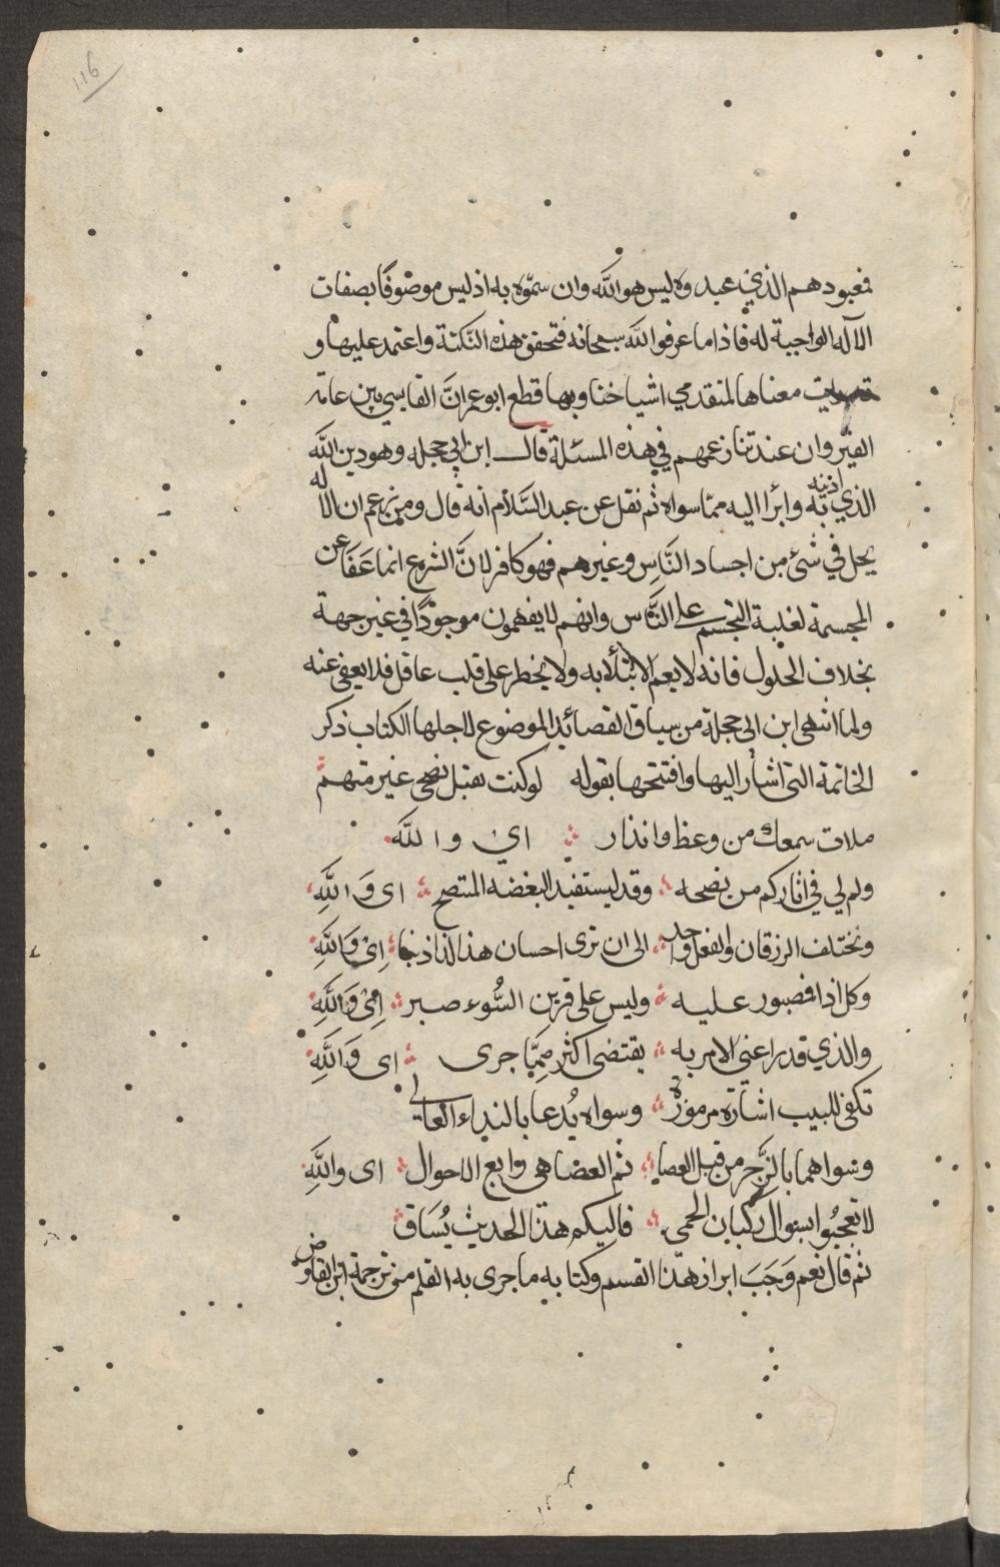 116
فمعبودهم الذي عبدوه ليس هو الله وان سمّوه به اذ ليس موصوفًا بصفات
الاله الواجبة له فاذا ما عرفوا الله سبحانه فتحقق هذه النكتة واعتمد عليها و
معناها لمتقدمي اشياخنا وبها قطع ابو عمران الفاسي بين عامة
القيروان عند تنازعهم في هذه المسئلة قال ابن ابي حجله وهو دين الله
الذي اذنبه به وابرأ اليه مما سواه ثم نقل عن عبد السّلام انه قال ومن زعم ان الاله
يحل في شئ من اجساد النَّاسِ وغيرهم فهو كافر لانَّ الشرع انما عَفَا عن
المجسمة لغلبة التجسم على النّاس وانهم لا يفهمون موجودًا في غير جهة
بخلاف الحلول فانه لا يعم الابتلا به ولا يخطر على قلب عاقل فلا يعفى عنه
ولما انتهى ابن ابي حجلة من سياق القصائد الموضوع لاجلها الكتاب ذكر
الخاتمة التي اشار اليها وافتتحها بقوله لو كنت تقبل نصحى غير متهم
ملات سمعك من وعظ وانذار اى والله
ولم لي في اثاركم من نصحه وقد يستفيد البغضه المتنصح اى وَاللَّهِ
وتختلف الرزقان والفعل واحد الى ان ترى احسان هذا لذا ذنبا اى وَاللَّهِ
وكل اذا فصبور عليه وليس على قرين السُّوء صبر اى وَاللَّهِ
والذي قدر اعنى الامر به يقتضى اكثر مِمَّا جرى اى وَاللَّهِ
تكفى للبيب اشارة مرموزة وسواه يُدعا بالنداء العالي
وسواهما بالزَّجر من قبل العصا ثم العصا هى رابع الاحوال اى واللَّهِ
لا تعجبُوا بسوال ركبان الحمى فاليكم هذا الحديث يُسَاق
ثم قال نعم وَجَبَ ابراز هذا القسم وكتابه ما جرى به القلم من ترجمة ابن الفارض